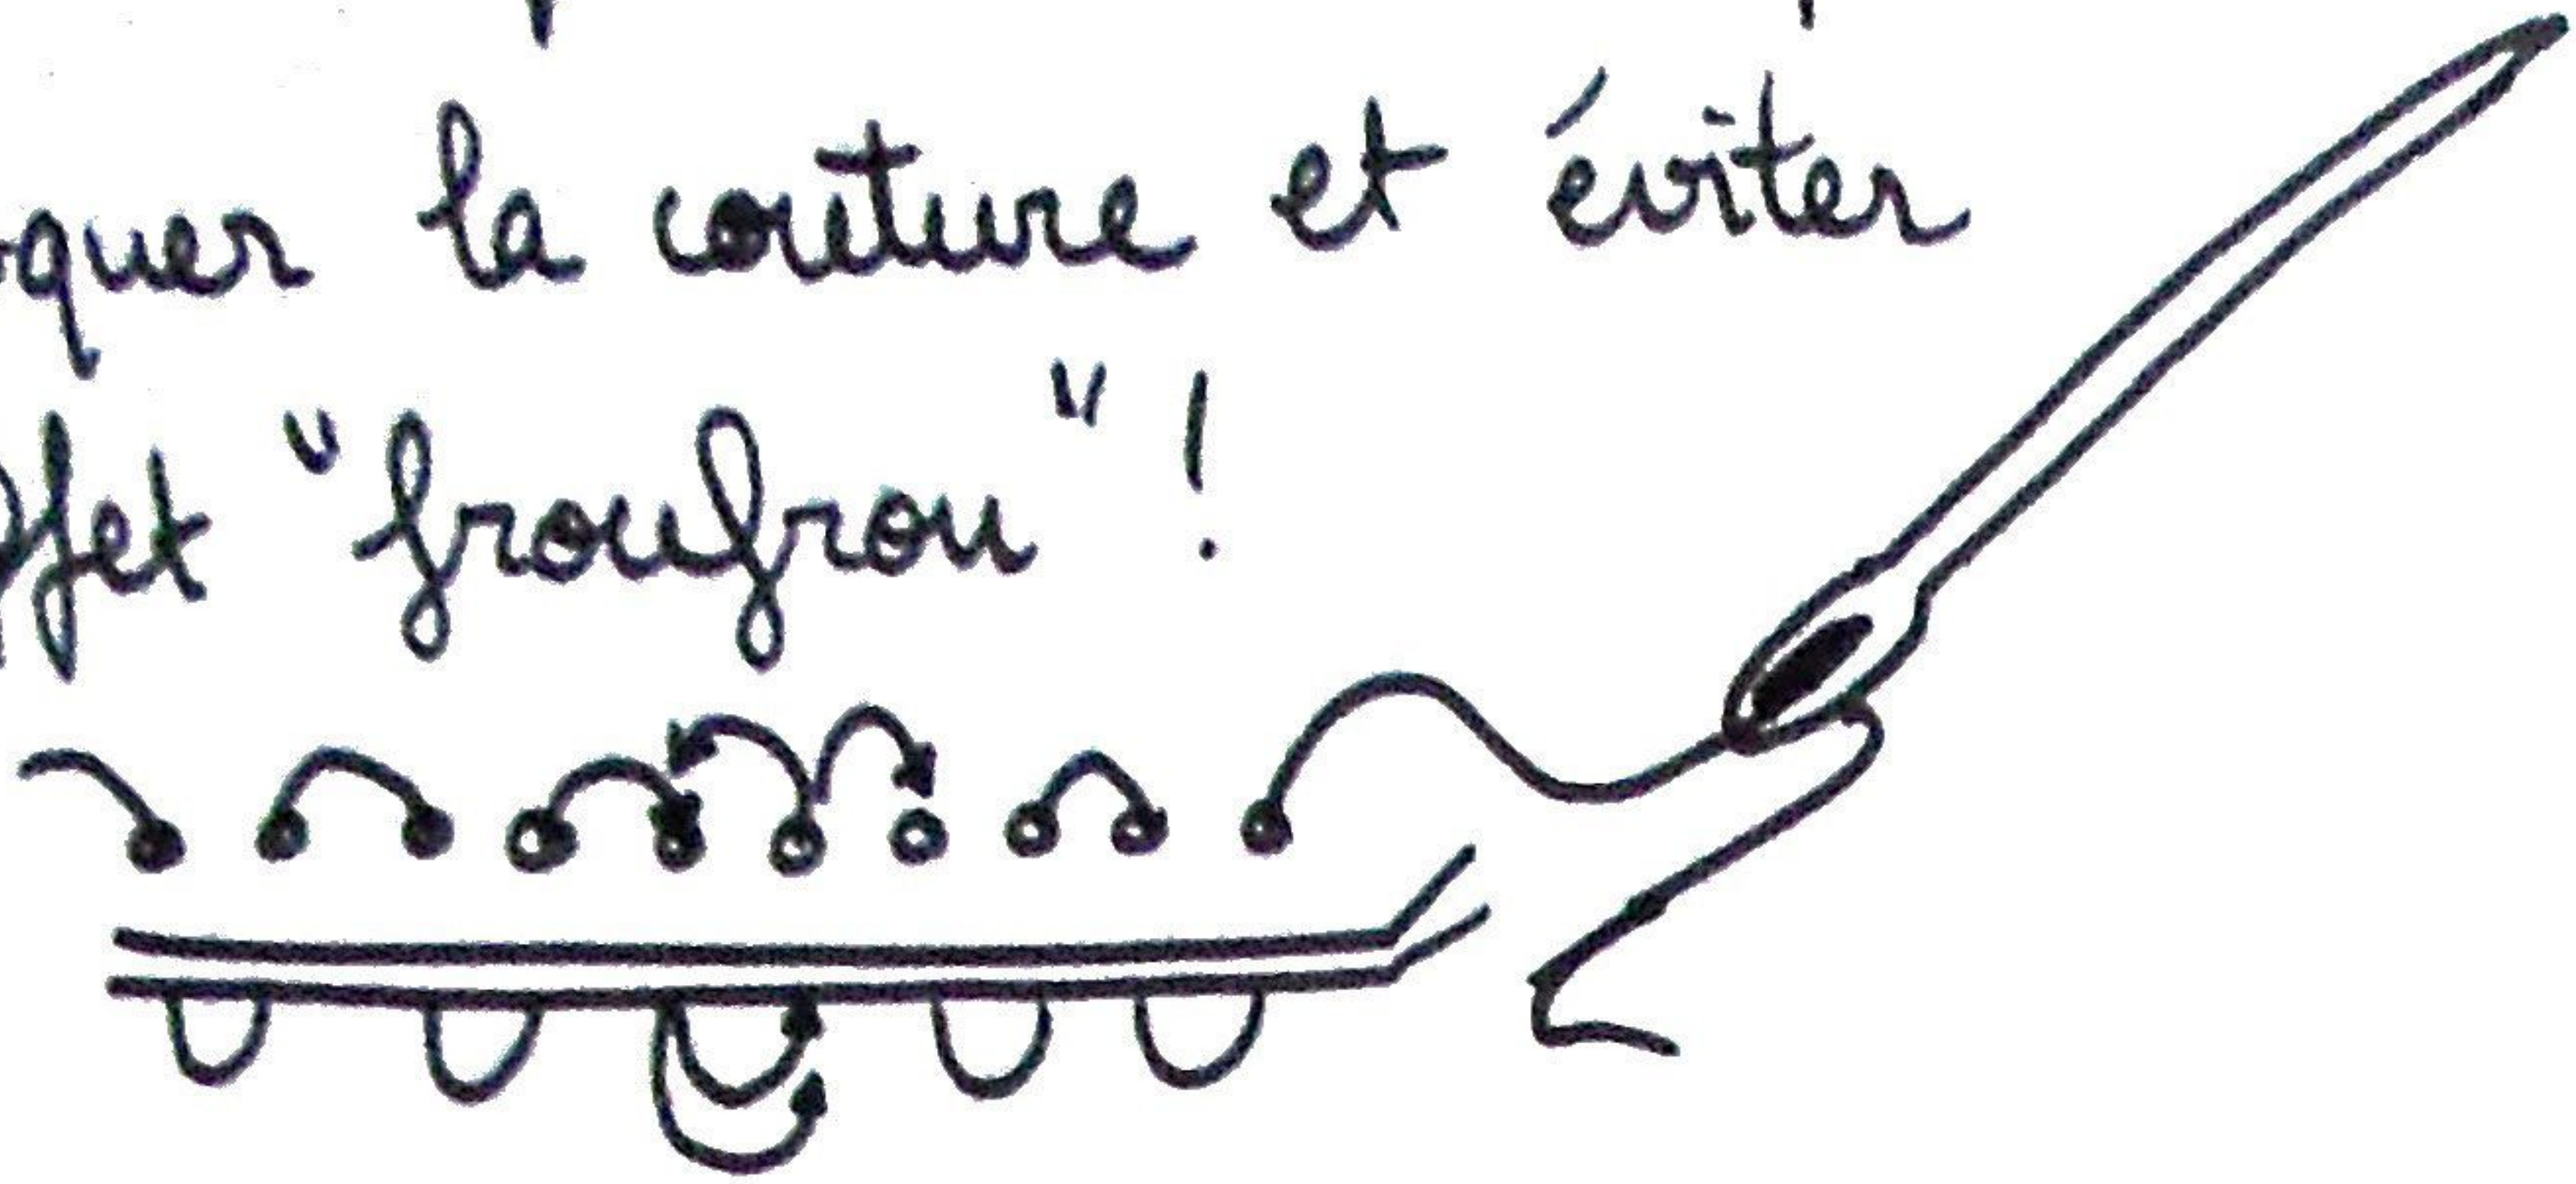 quer la couture et éviter
"froufrou" !